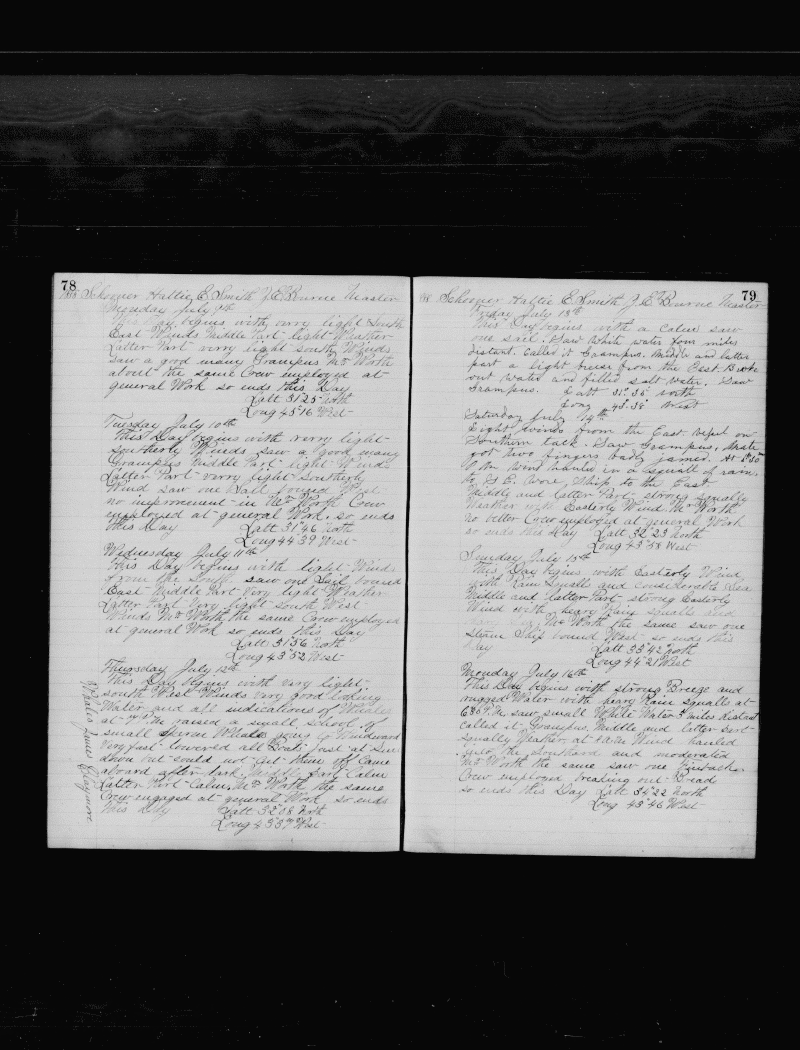 78
Schooner Hattie E Smith J. E. Bourne Master
Monday July 9th
This Day begins with very light South
East Winds Middle Part light Weather
Latter Part verry light South Winds
saw a good many Grampus Mr Worth
about the same Crew employed at
general Work so ends this Day
Latt 31°25 North
Long 45°16 West
Tuesday July 10th
This Day begins with verry light
Southerly Winds saw a good many
Grampus Middle Part light Winds
Latter Part verry light Southerly
Wind saw one Sail bound
no improvement in Mr Worth Crew
employed at general Work. so ends
this Day Latt 31°46 North
Long 44°39 West
Wednesday July 11th
This Day begins with light Winds
from the South saw one Sail bound
East Middle Part very light Weather
Latter Part very light South West
Winds Mr Worth the same Crew employed
at general Work so ends this Day
Latt 31°56 North
Long 43°52 West
Thursday July 12th
This Day begins with very light
South West Winds very good looking
Water and all indications of Whales
at P.M. raised a small School of
small Sperm Whale going to Windward
Very fast lowered all Boats just at Sun
down but could not get them off Came
aboard after dark Middle Part Calm
Latter Part Calm, Mr Worth the same
Crew engaged at general Work so ends
this Day Latt 32°08 North
Long 43°37 West
79
Schooner Hattie E Smith J. E. Bourne Master
Friday July 13th
This Day begins with a calm saw
one sail. Saw White water four miles
distant. Called it Grampus. Middle and latter
part a light breese from the East. Broke
out water and filled salt water. Saw
Grampus. Latt 31°.36' North
Long 43°.38' West
Saturday July 14th
Light winds from the East. Vessel on
Southern tack. Saw Grampus, Mate
got two fingers badly jamed. At
P.M. Wind hauled in a squall of rain.
to S E. Wore Ship to the East
Middle and latter Part, strong squally
Weather with Easterly Wind. Mr Worth
no better Crew employed at general Work
so ends this Day Latt 32°23 North
Long 43°58 West
Sunday July 15th
This Day begins with Easterly Wind
with Rain Squalls and considerable Sea
Middle and latter Part strong Easterly
Wind with heavy Rain squalls and
Sea, Mr Worth the same saw one
Steam Ship bound West so ends this
Day Latt 33°42 North
Long 44°21 West
Monday July 16th
This Day begins with strong Breeze and
rugged Water with heavy Rain squalls at
6 P.M. saw small White Water 3 miles distant
called it Grampus, Middle and latter Part
squally Weather at Wind hauled
into the Southard and moderated
Mr Worth the same saw one Finback
Crew employed breaking out Bread
so ends this Day Latt 34°22 North
Long 43°46 West